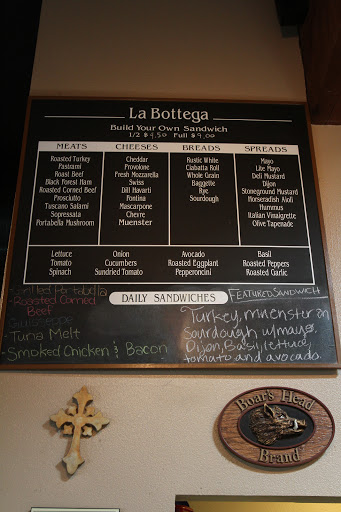 La Bottega
Build Your Own Sandwich
1/2 $4.50 Full $9.00
MEATS
Roasted Turkey
Pastrami
Roast Beef
Black Forest Ham
Roasted Corned Beef
Prosciutto
Tuscano Salami
Sopressata
Portabella Mushroom
CHEESES
Cheddar
Provolone
Fresh Mozzarella
Swiss
Dill Havarti
Fontina
Mascarpone
Chevre
Muenster
BREADS
Rustic White
Ciabatta Roll
Whole Grain
Baggette
Rye
Sourdough
SPREADS
Mayo
Lite Mayo
Deli Mustard
Dijon
Stoneground Mustard
Horseradish Aioli
Hummus
Italian Vinaigrette
Olive Tapenade
Lettuce
Tomato
Spinach
Onion
Cucumbers
Sundried Tomato
Avocado
Roasted Eggplant
Pepperoncini
Basil
Roasted Peppers
Roasted Garlic
DAILY SANDWICHES
Grilled Portabella
- Roasted Corned
Beef
- Tuna Melt
- Smoked Chicken & Bacon
FEATURED SANDWICH
Turkey, muenster on
Sourdough w/mayo,
Dijon, Basil, lettuce,
tomato and avocado.
Boar's Head
Brand